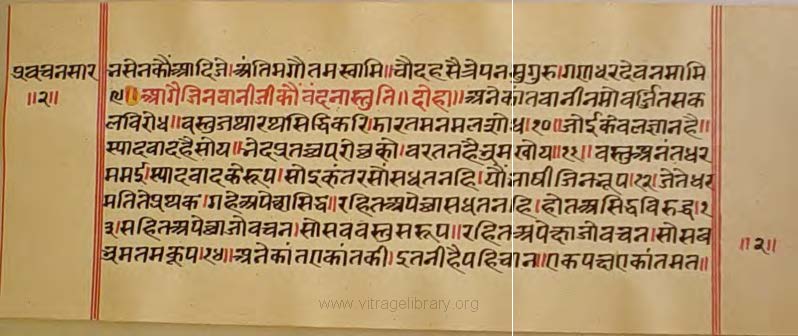 प्रवचनसार
॥२॥
नसेनकौंआदिजे।अंतिमगौतमस्वामि॥चौदहसैत्रेपनसुगुरु।गणधरदेवनमामि
॥९॥आगैजिनवानीजीकौंवंदनास्तुति॥दोहा॥अनेकांतवानीनमोवर्जितसक
लविरोध॥वस्तुजथारथसिद्धिकरि।फारतमनमलशोध॥१०॥जोईकेवलज्ञानहै॥
स्याद्वादहैसोय॥भेदप्रतच्चपरोच्चकौ।वरततहैभ्रमखोय॥११॥वस्तुअनंतधर
ममई।स्याद्वादकेरूप।सोइकंतरसोंसधतनहि।यौंभाषीजिनभूप॥१२॥जेतेधर
मतितेपृथक।गहैअपेच्चासिद्ध॥रहितअपेच्चासधतनहि।होतअसिद्धविरुद्ध॥१
३॥सहितअपेच्चाजोवचन।सोसववस्तुसरूप॥रहितअपेच्छाजोवचन।सोसव
भ्रमतमकूप॥१४॥अनेकांतएकांतकी।इतनीहैपहिचान॥एकपच्छएकांतमत॥
॥२॥
www.vitragelibrary.org